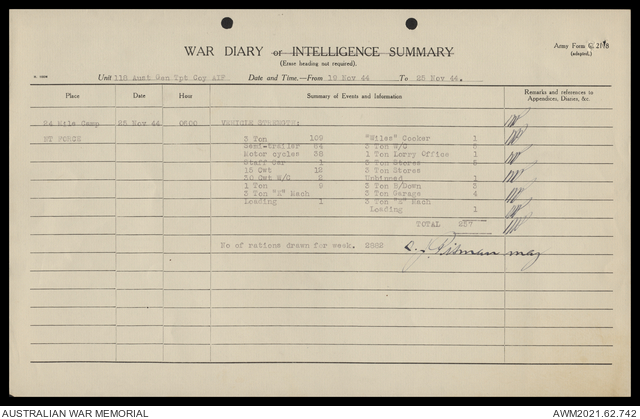 WAR DIARY or INTELLIGENCE SUMMARY
(Erase heading not required).
Army Form C. 2118
(adapted).
Unit 118 Aust Gen Tpt Coy AIF. Date and Time.—From 19 Nov 44 To 25 Nov 44.
Place Date Hour Summary of Events and Information Remarks and references to Appendices, Diaries, &c.
54 Mile Camp 25 Nov 44 0600 VEHICLE STRENGTH:
NT FORCE 3 Ton 109 "Wiles" Cooker 1
Semi-trailer 64 3 Ton G/C
Motor cycles 38 1 Ton Lorry Office 1
Staff Car 1 3 Ton Stores
15 Cwt 12 3 Ton Stores
30 Cwt M/C 2 Unbinned 1
1 Ton 9 3 Ton B/Down 3
3 Ton "Z" Mach 3 Ton Garage 4
Loading 1 3 Ton "Z" Mach
Loading 1
TOTAL 257
No of rations drawn for week. 2882
Pitman maj
AUSTRALIAN WAR MEMORIAL AWM2021.62.742